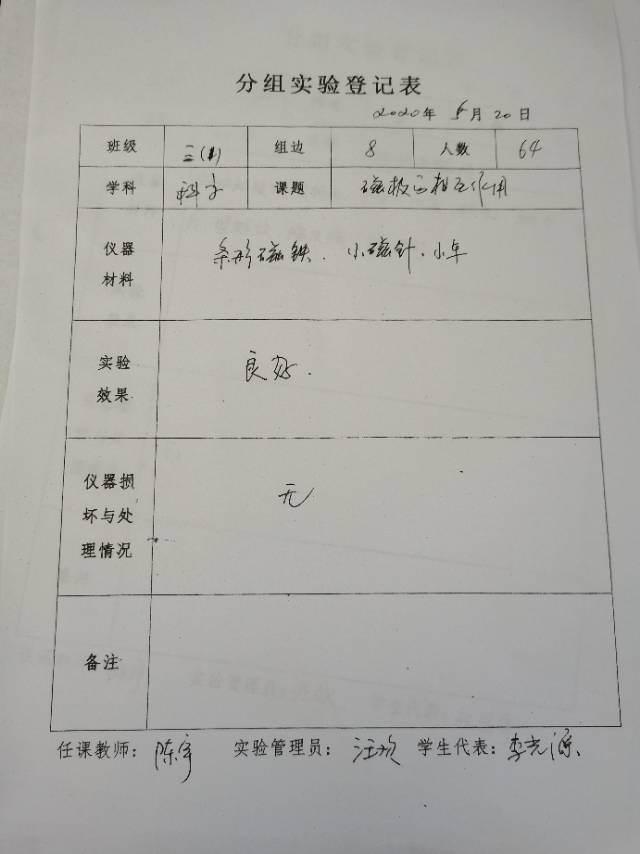 分组实验登记表
2020年 5月 20日
班级 三(1) 组边 8 人数 64
学科 科学 课题 磁极的相互作用
仪器
材料
条形磁铁、小磁针、小车
实验
效果
良好.
仪器损
坏与处
理情况
无
备注
任课教师: 陈宇 实验管理员: 汪欢 学生代表: 李光源